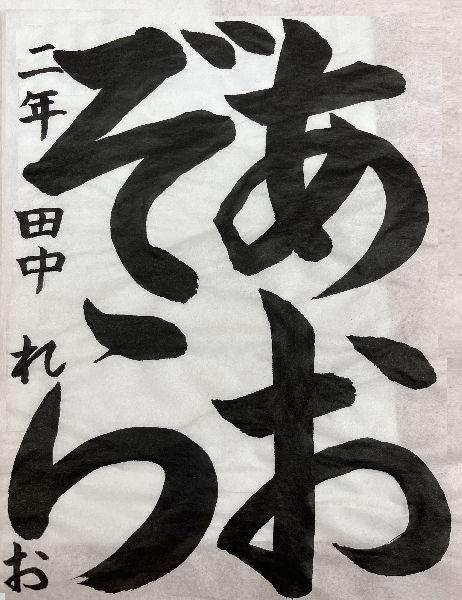 あお
ぞら
二年 田中 れお